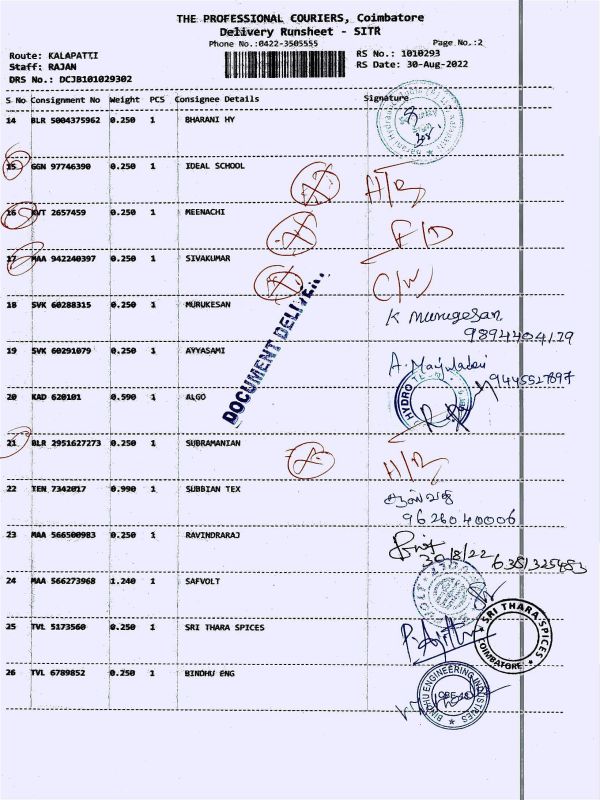 THE PROFESSIONAL COURIERS, Coimbatore
Delivery Runsheet - SITR
Phone No.:0422-3505555
Page No.:2
Route: KALAPATTI
RS No.: 1010293
Staff: RAJAN
RS Date: 30-Aug-2022
DRS No.: DCJB101029302
S No Consignment No Weight PCS Consignee Details Signature
14 BLR 5004375962 0.250 1 BHARANI HY
15 GGN 97746390 0.250 1 IDEAL SCHOOL
H/R
16 KVT 2657459 0.250 1 MEENACHI
F/D
17 MAA 942240397 0.250 1 SIVAKUMAR
C/W
18 SVK 60288315 0.250 1 MURUKESAN K Murugesan
9894404179
19 SVK 60291079 0.250 1 AYYASAMI
9445527897
DOCUMENT
20 KAD 620101 0.590 1 ALGO
HYDRO
21 BLR 2951627273 0.250 1 SUBRAMANIAN
H/R
22 TEN 7342017 0.990 1 SUBBIAN TEX
9626040006
23 MAA 566500983 0.250 1 RAVINDRARAJ
30/8/22
24 MAA 566273968 1.240 1 SAFVOLT
25 TVL 5173560 0.250 1 SRI THARA SPICES
SRI THARA SPICES
COIMBATORE
26 TVL 6789852 0.250 1 BINDHU ENG
BINDHU ENGINEERING INDUSTRIES